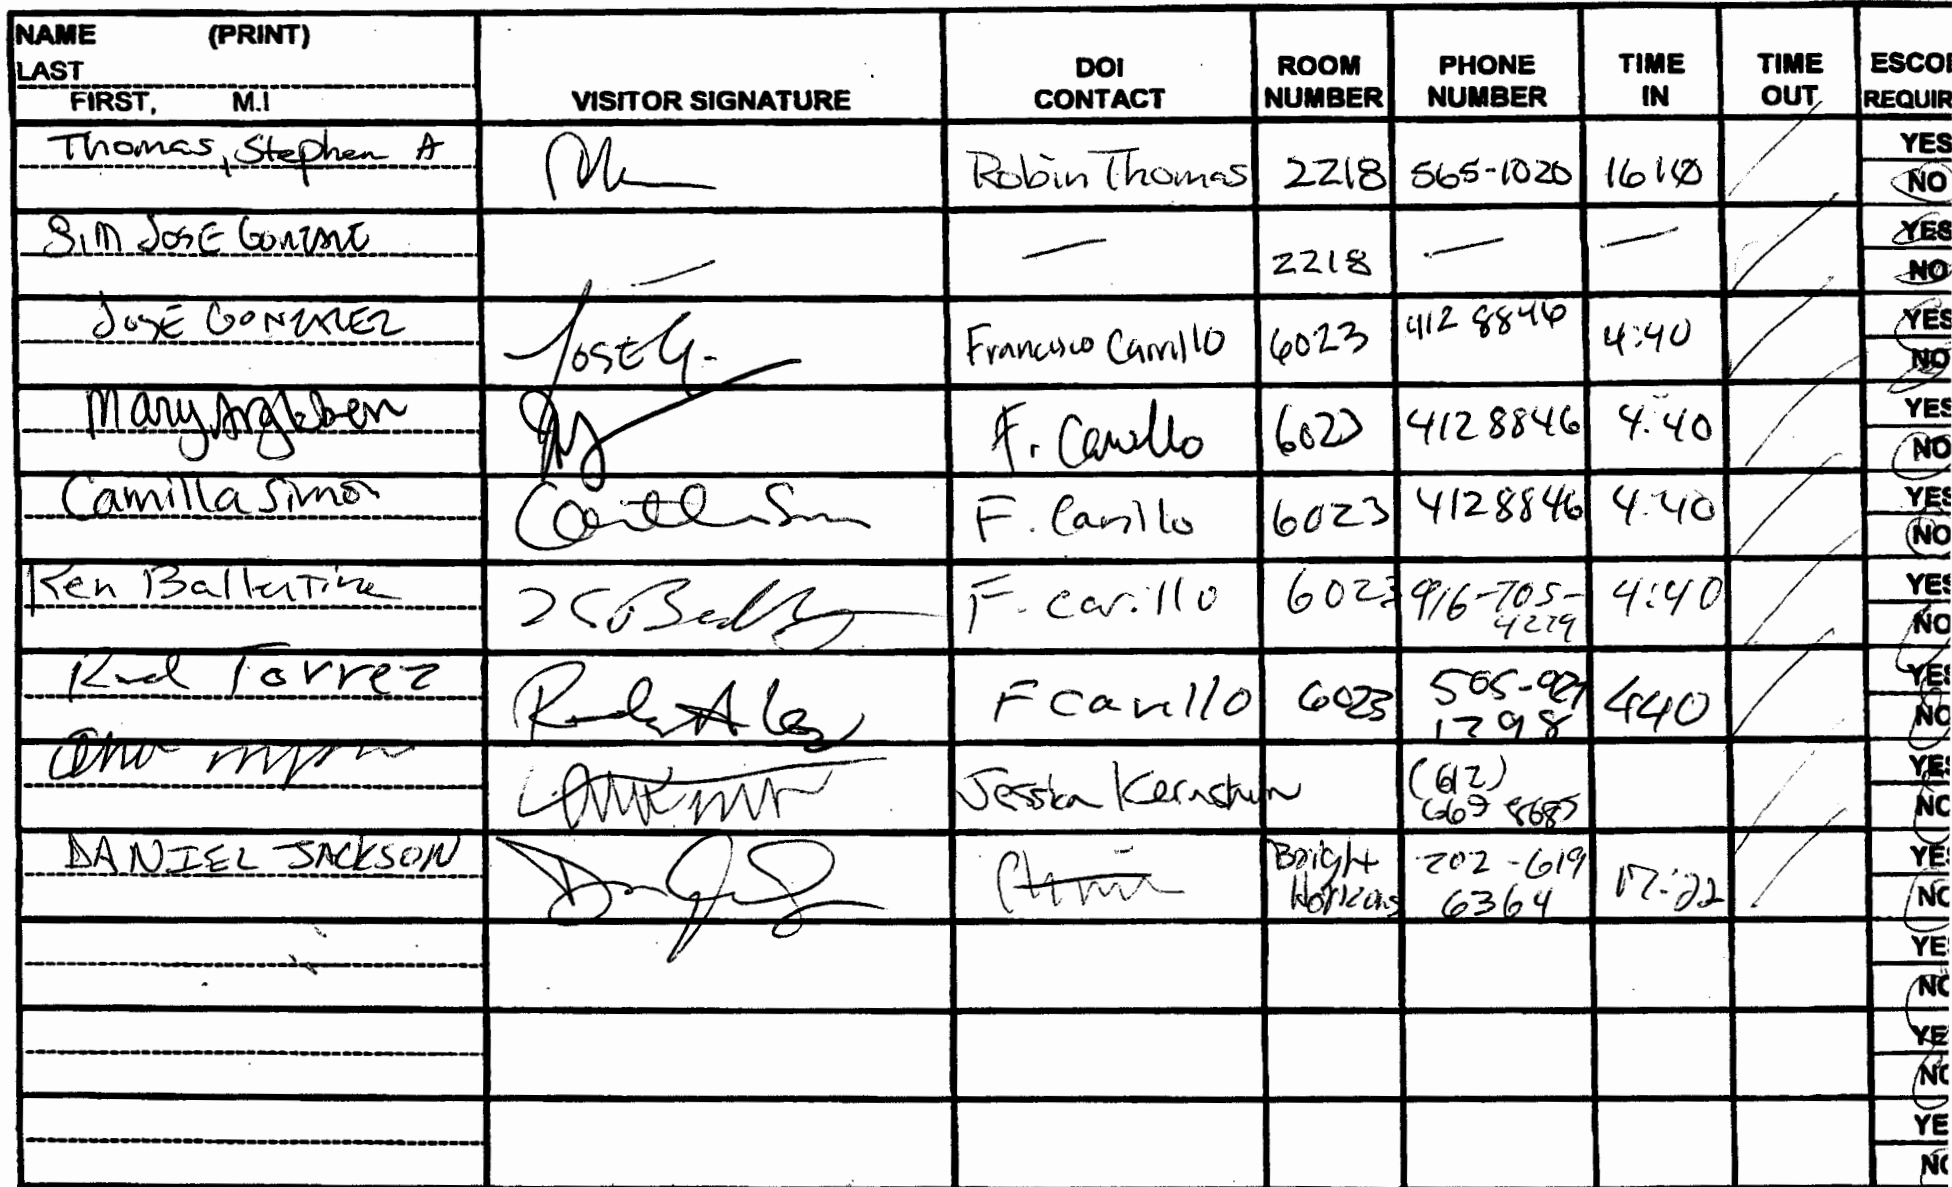 NAME (PRINT)
LAST
FIRST, M.I
VISITOR SIGNATURE
DOI
CONTACT
ROOM
NUMBER
PHONE
NUMBER
TIME
IN
TIME
OUT
ESCOR
REQUIR
Thomas, Stephen A Robin Thomas 2218 565-1020 1610 YES
NO
JOSE 2218 YES
NO
JOSE GONZALEZ JOSE G. Francisco Carrillo 6023 412 8846 4:40 YES
NO
Mary F. Carrillo 6023 4128846 4:40 YES
NO
Camilla Simon F. Carillo 6023 4128846 4:40 YES
NO
Ken Ballentine F. Carillo 6023 916-705- 4:40 YES
4279 NO
Torrez F Carillo 6023 505- 440 YES
1298 NO
Jessica (612) YES
NO
DANIEL JACKSON Bright 202-619 17:22 YES
Horizons 6364 NO
YES
NO
YE
NO
YE
NO